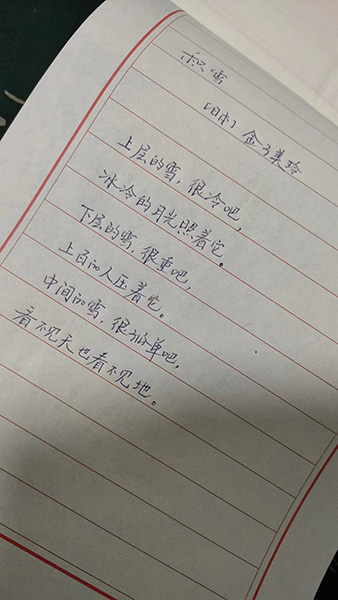 积雪
［日本］金子美玲
上层的雪，很冷吧，
冰冷的月光照着它。
下层的雪，很重吧，
上百的人压着它。
中间的雪，很孤单吧，
看不见天也看不见地。